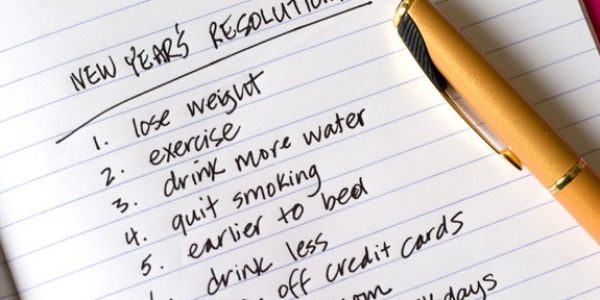 NEW YEAR'S RESOLUTION
1. lose weight
2. exercise
3. drink more water
4. quit smoking
5. earlier to bed
drink less
off credit cards
days